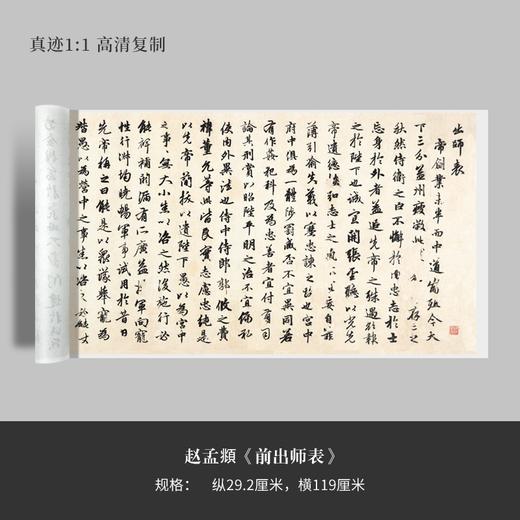 真迹1:1 高清复制
出師表
帝創業未半而中道崩殂今天
下三分益州疲敝此 存亡之
秋然侍衛之臣不懈於内忠志於士
忘身於外者蓋追先帝之殊遇欲報
之於陛下也誠宜開張聖聽以光先
帝遺德恢弘志士之氣不宜妄自菲
薄引喻失義以塞忠諫之路也宮中
府中俱為一體陟罰臧否不宜異同若
有作姦犯科及為忠善者宜付有司
論其刑賞以昭陛平明之治不宜偏私
使內外異法也侍中侍郎郭攸之費
禕董允等此皆良實志慮忠純是
以先帝簡拔以遺陛下愚以為宮中
之事無大小悉以咨之然後施行必
能裨補闕漏有所廣益將軍向寵
性行淑均曉暢軍事試用於昔日
先帝稱之曰能是以眾議舉寵為
督愚以為營中之事悉以咨
赵孟頫《前出师表》
规格： 纵29.2厘米，横119厘米